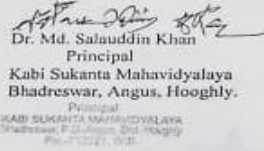 Dr. Md. Salauddin Khan
Principal
Kabi Sukanta Mahavidyalaya
Bhadreswar, Angus, Hooghly.
Principal
KABI SUKANTA MAHAVIDYALAYA